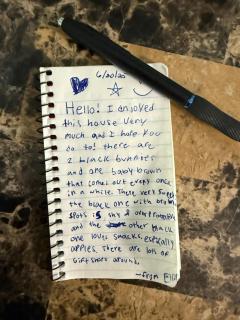 6/20/20
Hello! I enjoyed
this house very
much and I hope you
do to! there are
2 black bunnies
and one baby brown
that comes out every once
in a while. These very
the black one with brown
spots is shy &
and the other black
one loves snacks, especially
apples. There are lots of
gift shops around.
-from